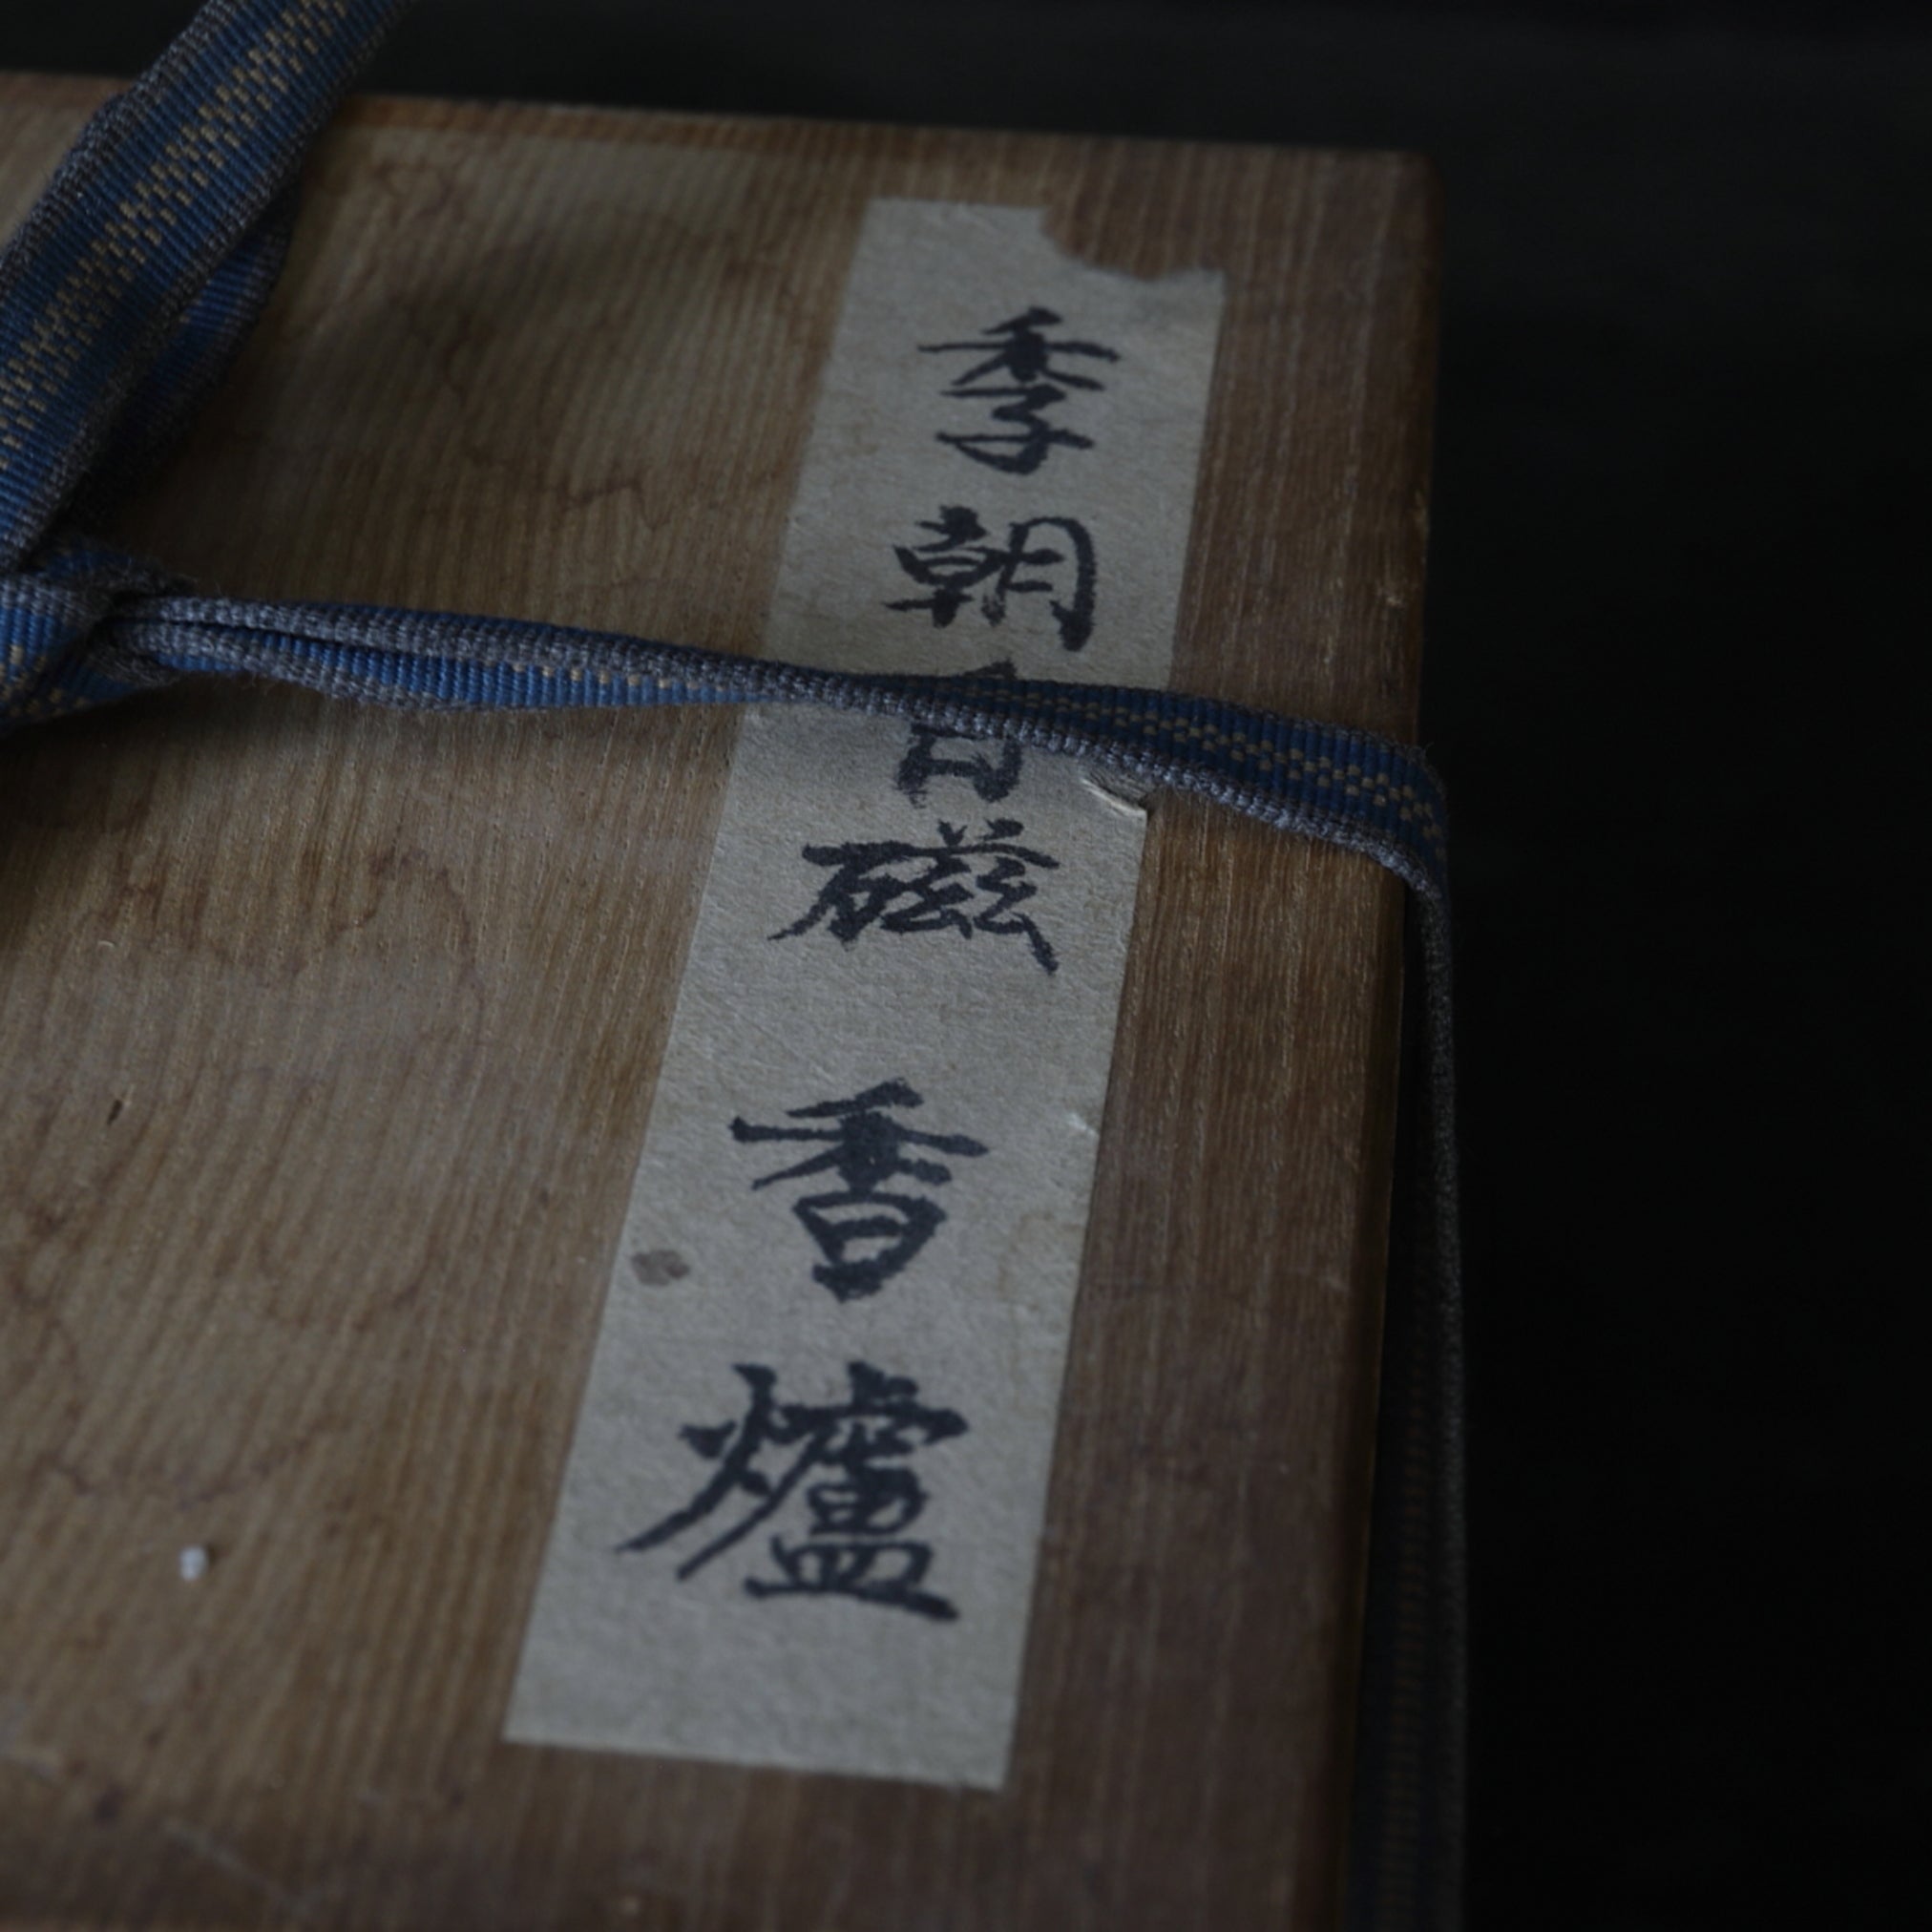 季朝白磁 香爐